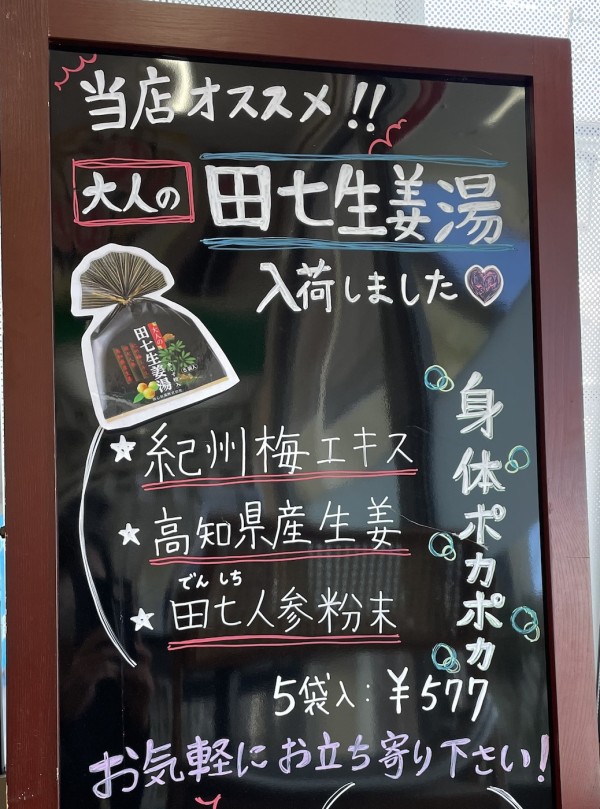 当店オススメ!!
大人の 田七生姜湯
入荷しました
大人の
田七生姜湯
身体ポカポカ
★紀州梅エキス
★高知県産生姜
でんしち
★田七人参粉末
5袋入:¥577
お気軽にお立ち寄り下さい!